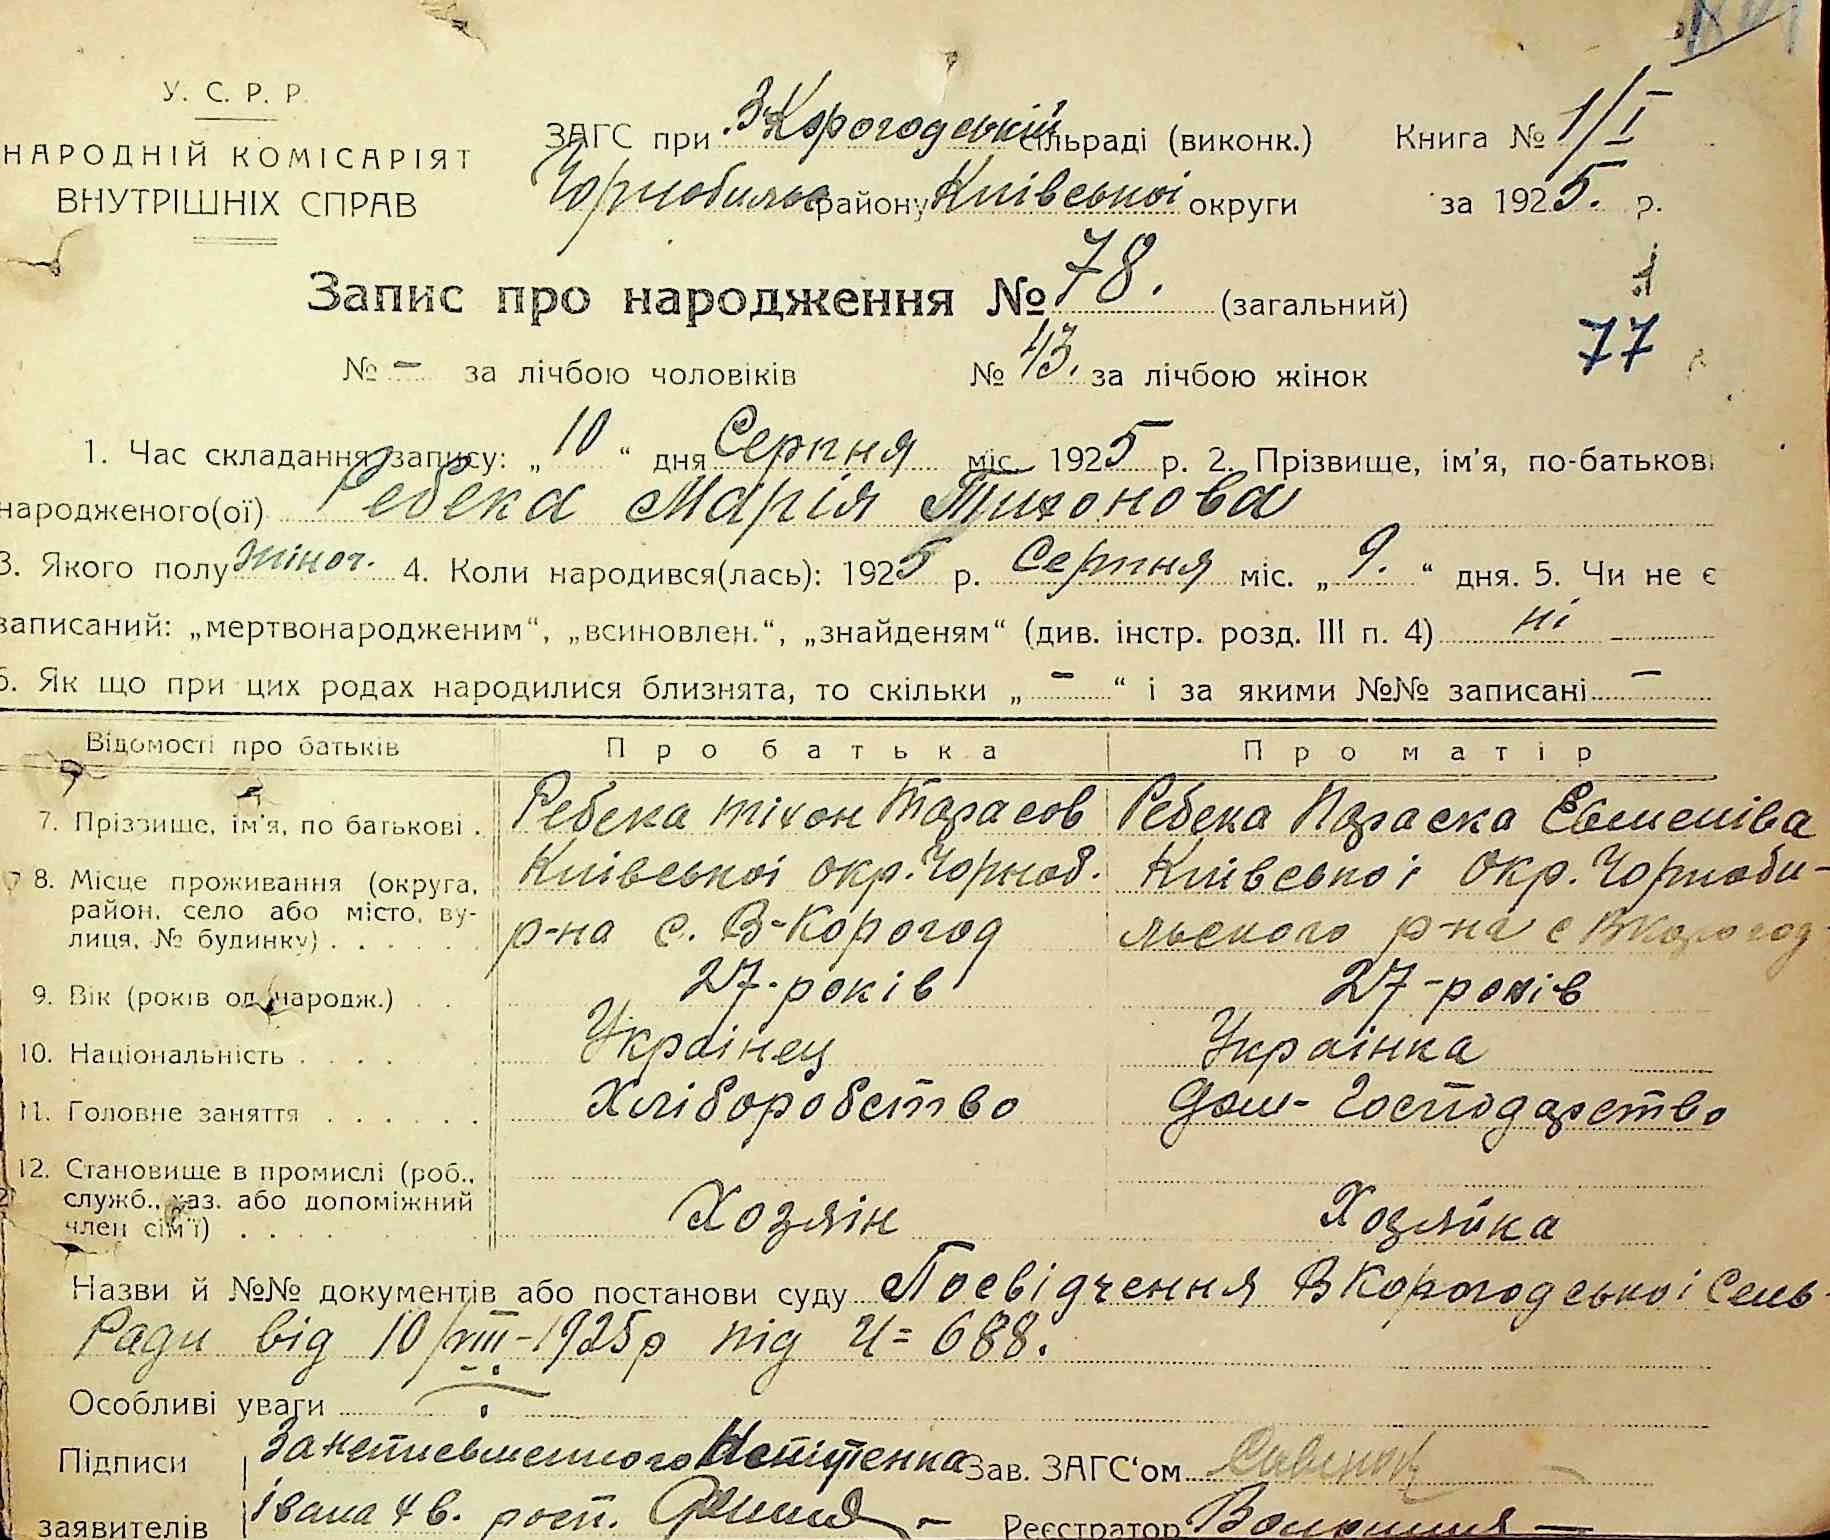 У. С. Р. Р.
НАРОДНІЙ КОМІСАРІЯТ
ВНУТРІШНІХ СПРАВ
ЗАГС при Корогодській сільраді (виконк.)
Чорнобильс району Київської округи
Книга № 1/I
за 1925. р.
Запис про народження № 78. (загальний)
77
№ – за лічбою чоловіків № 43. за лічбою жінок
1. Час складання запису: „10“ дня Серпня міс 1925 р. 2. Прізвище, ім'я, по-батькові
народженого(ої) Ребека Марія Тихонова
3. Якого полу жіноч. 4. Коли народився(лась): 1925 р. Серпня міс. „9.“ дня. 5. Чи не є
записаний: „мертвонародженим“, „всиновлен.“, „знайденям“ (див. інстр. розд. III п. 4) ні
6. Як що при цих родах народилися близнята, то скільки „–“ і за якими №№ записані –
Відомості про батьків Про батька Про матір
7. Прізвище, ім'я, по батькові . Ребека Тіхон Тарасов Ребека Параска Евменіва
8. Місце проживання (округа, район, село або місто, вулиця, № будинку) . . . . . .
Київської окр. Чорноб. Київської Окр. Чорноби-
р-на с. В-Корогод льского р-на с ВКорогод
9. Вік (років од народж.) . . 27-років 27-років
10. Національність . . . . Українец Українка
11. Головне заняття . . . . . . Хліборобство Дом-Господарство
12. Становище в промислі (роб.,
служб., хаз. або допоміжний
член сім'ї) . . . . Хозяін Хозяйка
Назви й №№ документів або постанови суду Посвідчення ВКорогодської Сель-
Ради від 10/VIII-1925р під Ч= 688.
Особливі уваги
Підписи
заявителів
За неписьменного
Івана рост.
Зав. ЗАГС'ом
Реєстратор